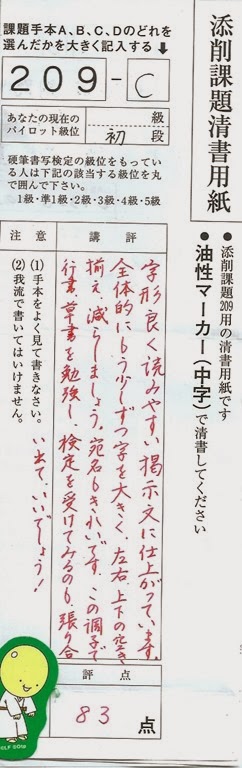 添削課題清書用紙
●添削課題209用の清書用紙です
●油性マーカー(中字)で清書してください
課題手本A、B、C、Dのどれを
選んだかを大きく記入する↓
209-C
あなたの現在の
パイロット級位
級
初段
硬筆書写検定の級位をもってい
る人は下記の該当する級位を丸
で囲んで下さい。
1級・準1級・2級・3級・4級・5級
講評
字形良く読みやすい掲示文に仕上がっています。
全体的にもう少しずつ字を大きく、左右、上下の空き
揃え、減らしましょう。宛名もきれいです。この調子で
行書、草書を勉強し、検定を受けてみるのも、張り合
い出て、いいでしょう!
注意
(1)手本をよく見て書きなさい。
(2)我流で書いてはいけません。
評点
83点